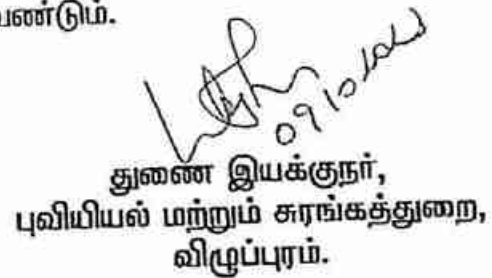 வேண்டும்.
துணை இயக்குநர்,
புவியியல் மற்றும் சுரங்கத்துறை,
விழுப்புரம்.